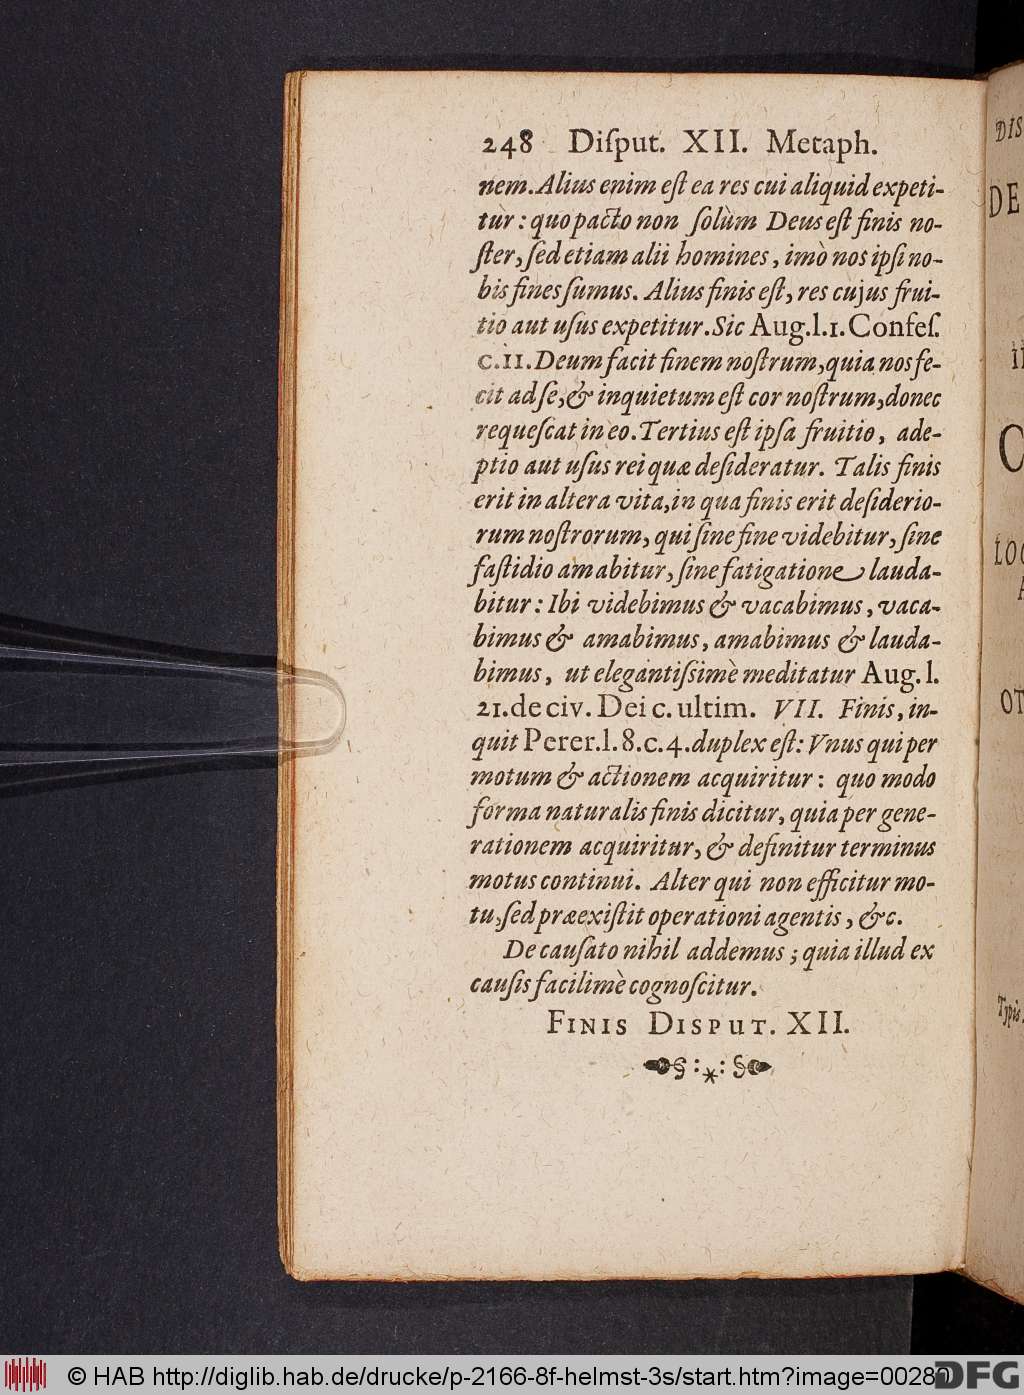 248 Diſput. XII. Metaph.
nem. Alius enim eſt ea res cui aliquid expeti-
tur: quo pacto non ſolùm Deus eſt finis no-
ſter, ſed etiam alii homines, imò nos ipſi no-
bis fines ſumus. Alius finis eſt, res cujus frui-
tio aut uſus expetitur. Sic Aug. l. 1. Confeſ.
c. 11. Deum facit finem noſtrum, quia nos fe-
cit ad ſe, & inquietum eſt cor noſtrum, donec
requeſcat in eo. Tertius eſt ipſa fruitio, ade-
ptio aut uſus rei quæ deſideratur. Talis finis
erit in altera vita, in qua finis erit deſiderio-
rum noſtrorum, qui ſine fine videbitur, ſine
faſtidio amabitur, ſine fatigatione lauda-
bitur: Ibi videbimus & vacabimus, vaca-
bimus & amabimus, amabimus & lauda-
bimus, ut elegantiſsimè meditatur Aug. l.
21. de civ. Dei c. ultim. VII. Finis, in-
quit Perer. l. 8. c. 4. duplex eſt: Vnus qui per
motum & actionem acquiritur: quo modo
forma naturalis finis dicitur, quia per gene-
rationem acquiritur, & definitur terminus
motus continui. Alter qui non efficitur mo-
tu, ſed præexiſtit operationi agentis, &c.
De cauſato nihil addemus; quia illud ex
cauſis facilimè cognoſcitur.
FINIS DISPUT. XII.
DIS
DE
LOC
OT
Typis
© HAB http://diglib.hab.de/drucke/p-2166-8f-helmst-3s/start.htm?image=00280
DFG